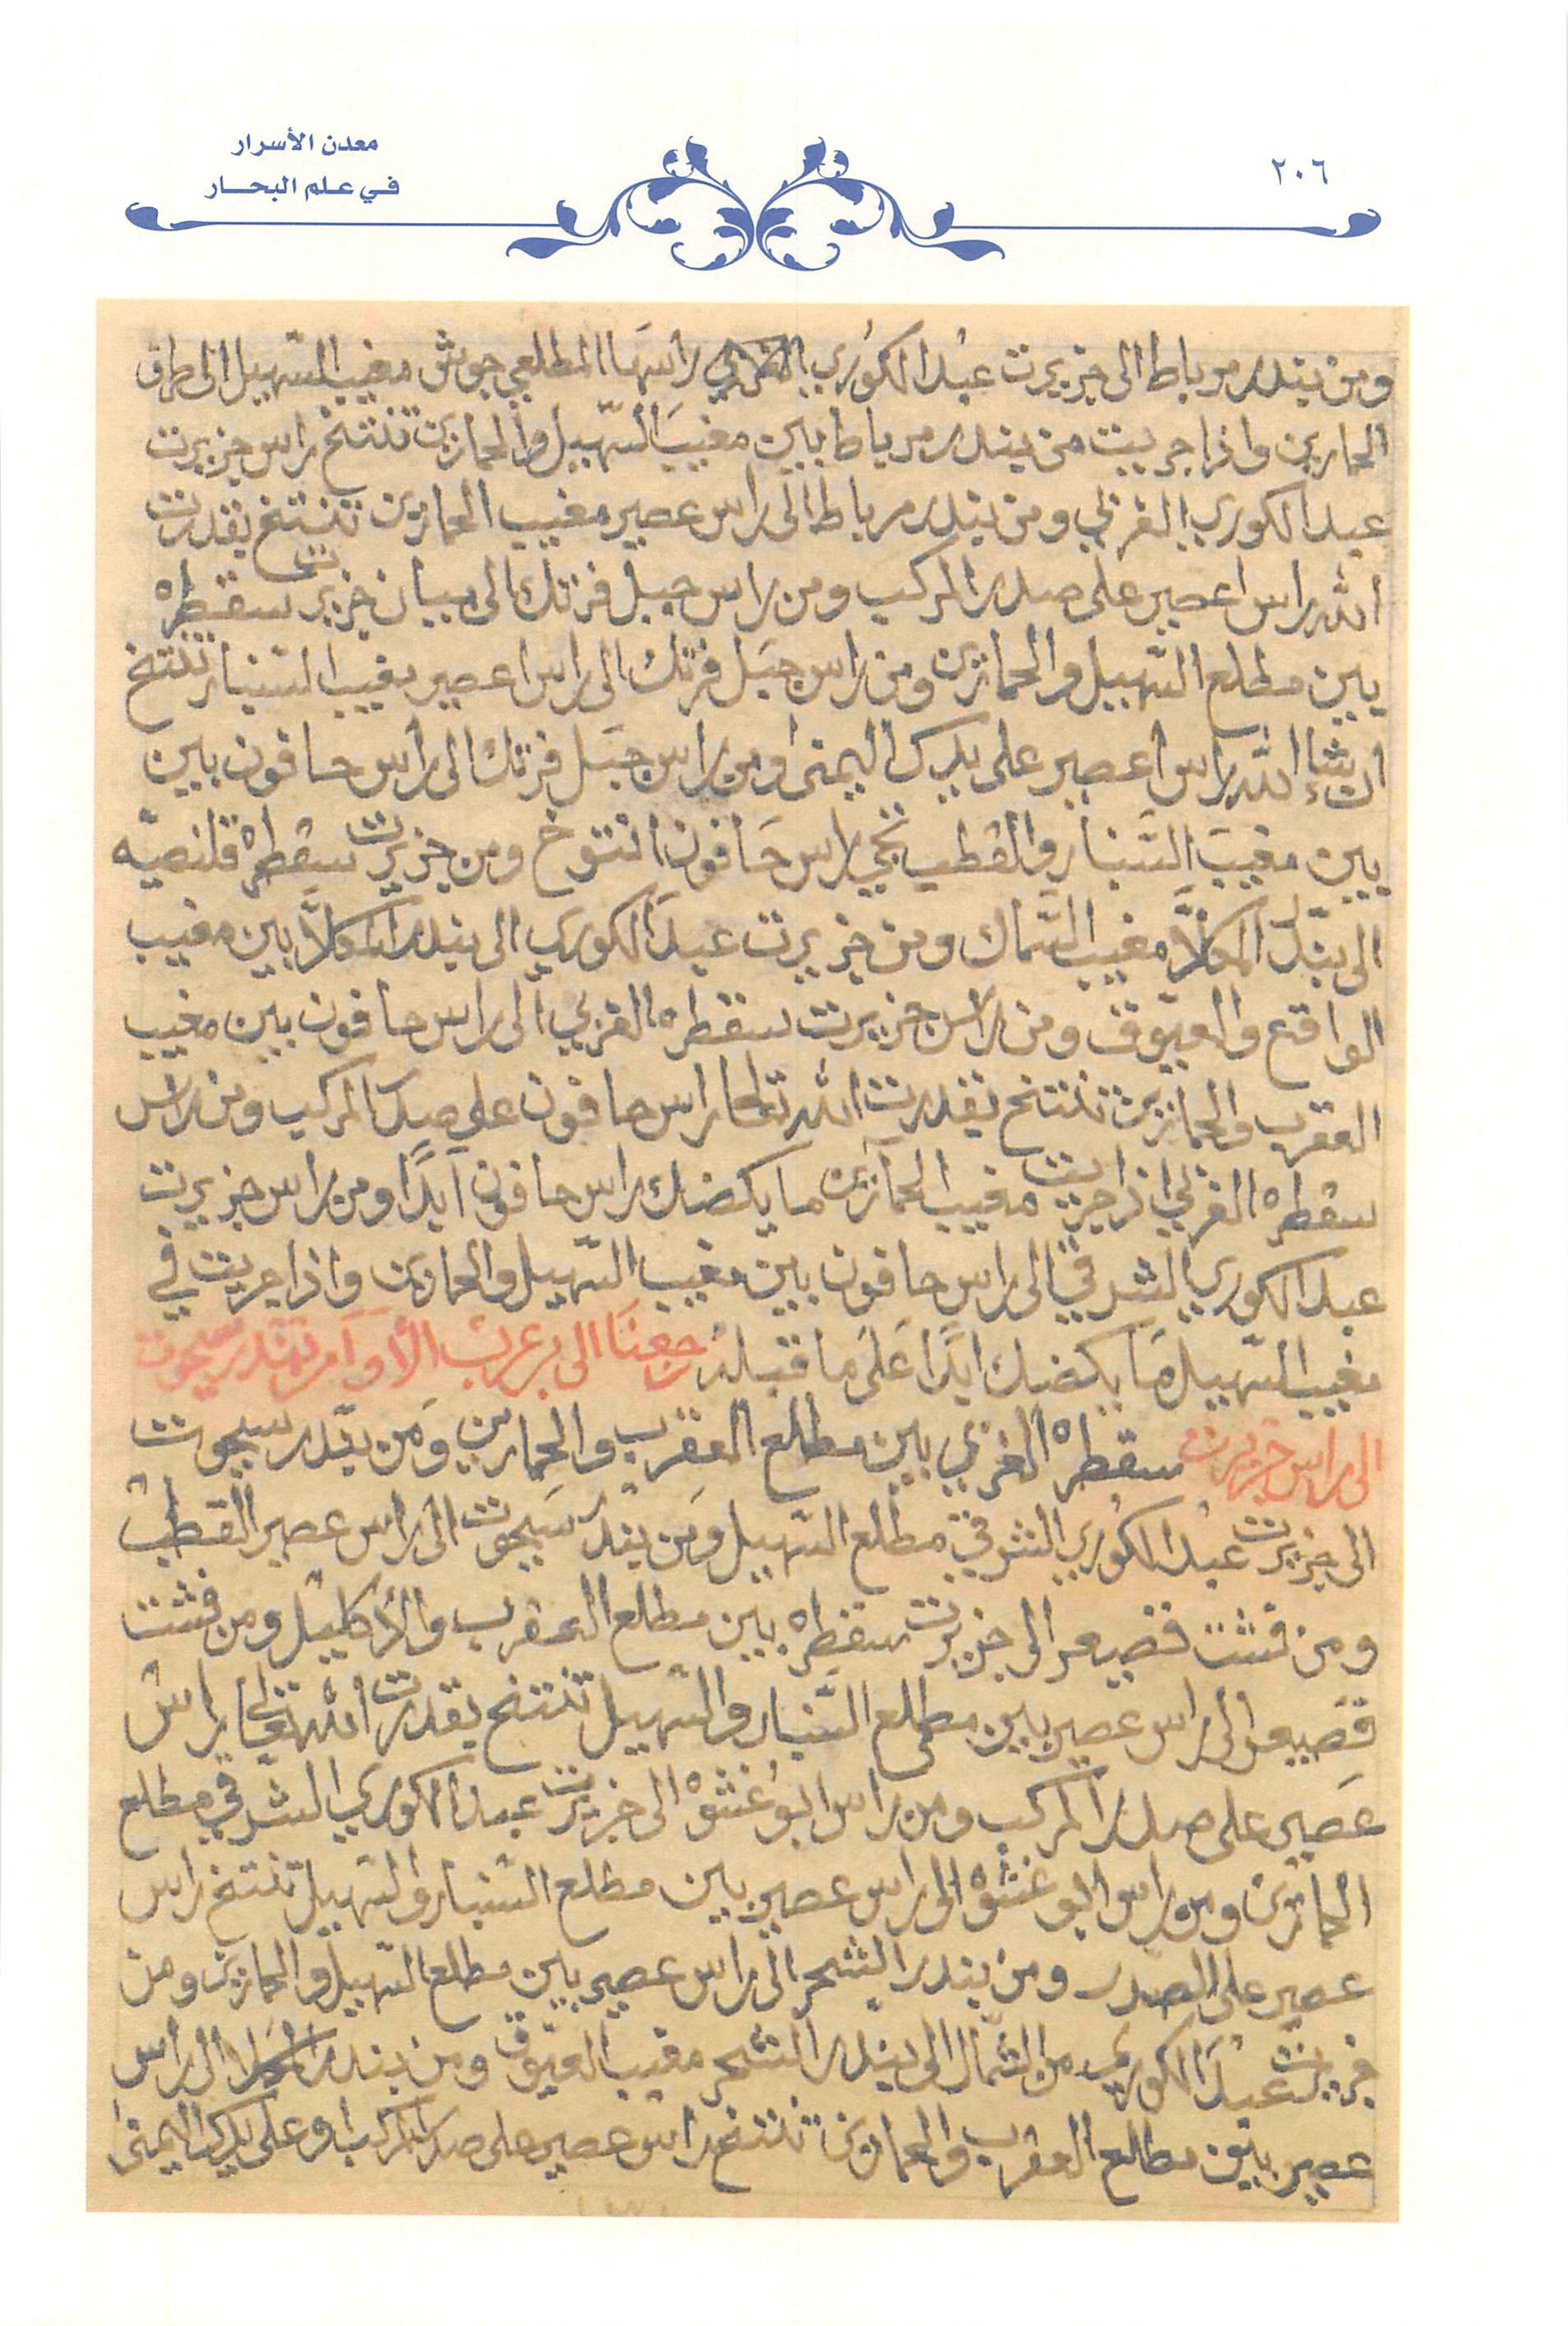 معدن الأسرار
في علم البحار
٢٠٦
ومن بندر مرباط الى جزيرت عبد الكوري راسها المطلعي جوش مغيب السهيل الى طرف
الحمارين واذا جريت من بندر مرباط بين مغيب السهيل والحمارين تنتخ راس جزيرت
عبد الكوري الغربي ومن بندر مرباط الى راس عصير مغيب الحمارين تنتخ بقدرت
الله راس اعصير على صدر المركب ومن راس جبل فرتك الى سيان جزيرت سقطره
بين مطلع السهيل والحمارين ومن راس جبل فرتك الى راس اعصير مغيب السنبار تنتخ
ان شاء الله راس اعصير على يدك اليمنى ومن راس جبل فرتك الى راس حافون بين
بين مغيب السنبار والقطب تجي راس حافون انتوخ ومن جزيرت سقطره قلنصيه
الى بندر المكلا مغيب السماك ومن جزيرت عبد الكوري الى بندر المكلا بين مغيب
الواقع والعيوق ومن راس جزيرت سقطره الغربي الى راس حافون بين مغيب
العقرب والحمارين تنتخ بقدرت الله تعالى راس حافون على صدر المركب ومن راس
سقطره الغربي اذا جريت مغيب الحمارين ما يكضك راس حافون ابدًا ومن راس جزيرت
عبد الكوري الشرقي الى راس حافون بين مغيب السهيل والحمارين واذا جريت في
مغيب السهيل ما يكضك ابدًا على ما قبله رجعنا الى بر عرب الأو من بندر سيحوت
الى راس جزيرت سقطره الغربي بين مطلع العقرب والحمارين ومن بندر سيحوت
الى جزيرت عبد الكوري الشرقي مطلع السهيل ومن بندر سيحوت الى راس عصير القطب
ومن قشت قصيعر الى جزيرت سقطره بين مطلع العقرب والأكليل ومن قشت
قصيعر الى راس عصير بين مطلع السنبار والسهيل تنتخ بقدرت الله تعالى راس
عصير على صدر المركب ومن راس ابو غشوه الى جزيرت عبد الكوري الشرقي مطلع
الحمارين ومن راس ابو غشوه الى راس عصير بين مطلع السنبار والسهيل تنتخ راس
عصير على الصدر ومن بندر الشحر الى راس عصير بين مطلع السهيل والحمارين ومن
جزيرت عبد الكوري من الشمال الى بندر الشحر مغيب العيوق ومن بندر المكلا الى راس
عصير بين مطلع العقرب والحمارين تنتخ راس عصير على صدر المركب او على يدك اليمنى